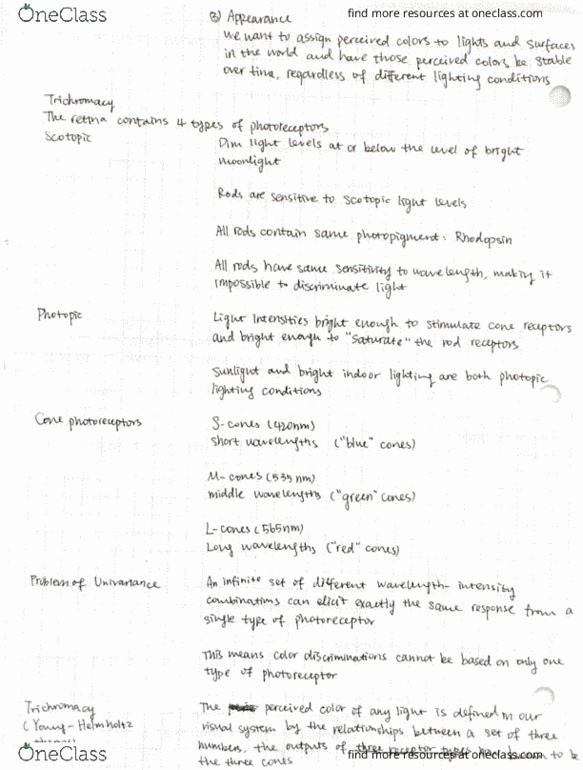 OneClass
find more resources at oneclass.com
③ Appearance
We want to assign perceived colors to lights and surfaces
in the world and have those perceived colors be stable
over time, regardless of different lighting conditions
Trichromacy
The retina contains 4 types of photoreceptors
Scotopic
Dim light levels at or below the level of bright
moonlight
Rods are sensitive to scotopic light levels
All rods contain same photopigment: Rhodopsin
All rods have same sensitivity to wavelength, making it
impossible to discriminate light
Photopic
Light Intensities bright enough to stimulate cone receptors
and bright enough to "saturate" the rod receptors
Sunlight and bright indoor lighting are both photopic
lighting conditions
Cone photoreceptors
S-cones (420nm)
short wavelengths ("blue" cones)
M-cones (535nm)
middle wavelengths ("green" cones)
L-cones (565nm)
Long wavelengths ("red" cones)
Problem of Univariance
An infinite set of different wavelength-intensity
combinations can elicit exactly the same response from a
single type of photoreceptor
This means color discriminations cannot be based on only one
type of photoreceptor
Trichromacy
(Young-Helmholtz
The perceived color of any light is defined in our
visual system by the relationships between a set of three
numbers, the outputs of three receptor types
the three cones
OneClass
find more resources at oneclass.com